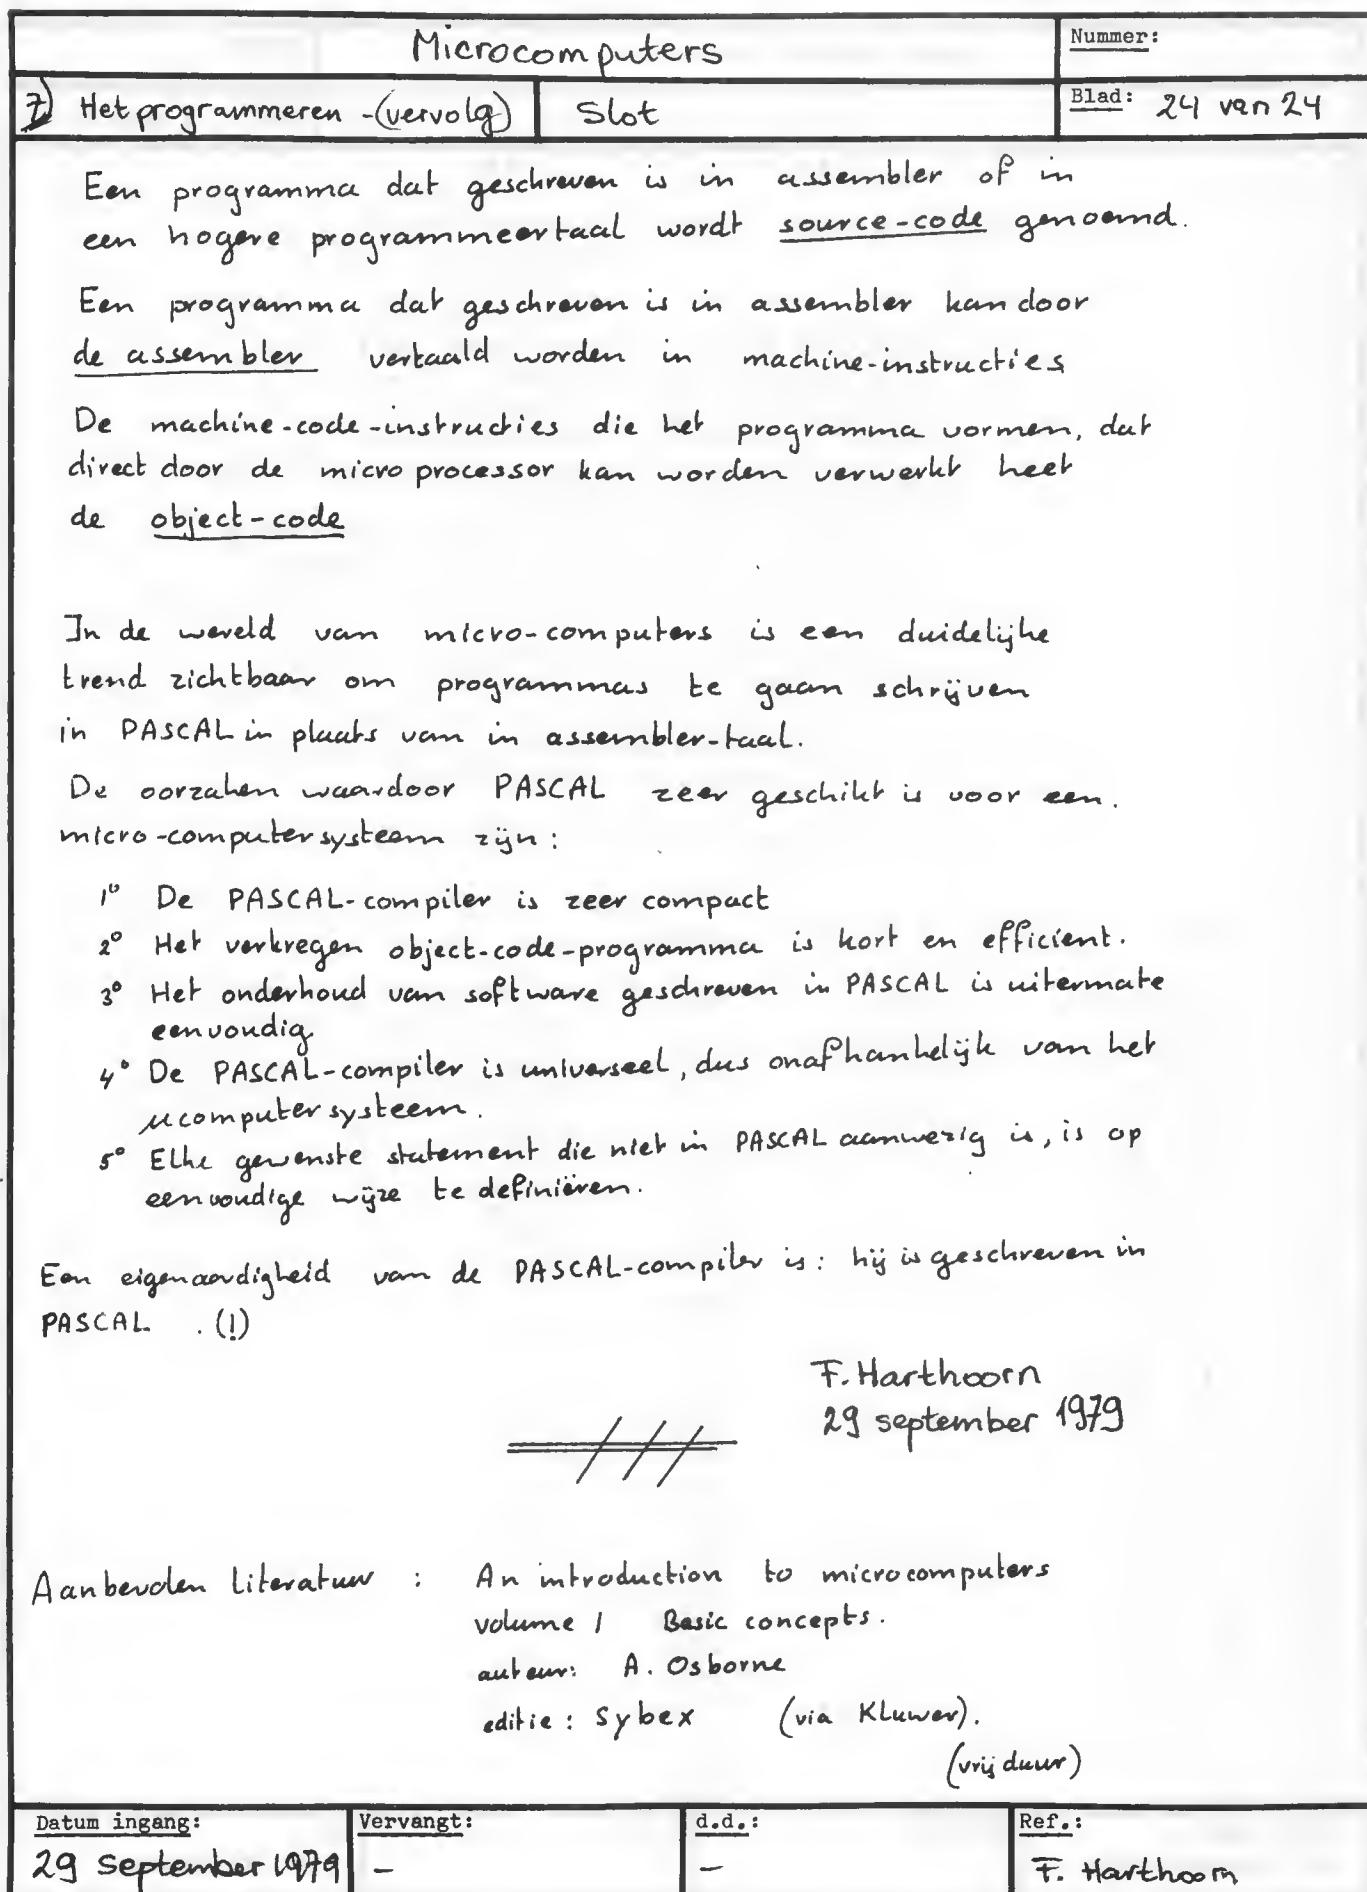 Microcomputers
Nummer:
7) Het programmeren -(vervolg)
Slot
Blad: 24 van 24
Een programma dat geschreven is in assembler of in
een hogere programmeertaal wordt source-code genoemd.
Een programma dat geschreven is in assembler kan door
de assembler vertaald worden in machine-instructies
De machine-code-instructies die het programma vormen, dat
direct door de microprocessor kan worden verwerkt heet
de object-code
In de wereld van micro-computers is een duidelijke
trend zichtbaar om programmas te gaan schrijven
in PASCAL in plaats van in assembler-taal.
De oorzaken waardoor PASCAL zeer geschikt is voor een.
micro-computersysteem zijn:
1° De PASCAL-compiler is zeer compact
2° Het verkregen object-code-programma is kort en efficient.
3° Het onderhoud van software geschreven in PASCAL is uitermate
eenvoudig
4° De PASCAL-compiler is universeel, dus onafhankelijk van het
µcomputersysteem.
5° Elke gewenste statement die niet in PASCAL aanwezig is, is op
eenvoudige wijze te definiëren.
Een eigenaardigheid van de PASCAL-compiler is: hij is geschreven in
PASCAL. (!)
F. Harthoorn
29 september 1979
Aanbevolen literatuur : An introduction to microcomputers
volume 1 Basic concepts.
auteur: A. Osborne
editie: Sybex (via Kluwer).
(vrij duur)
Datum ingang:
29 September 1979
Vervangt:
-
d.d.:
-
Ref.:
F. Harthoorn